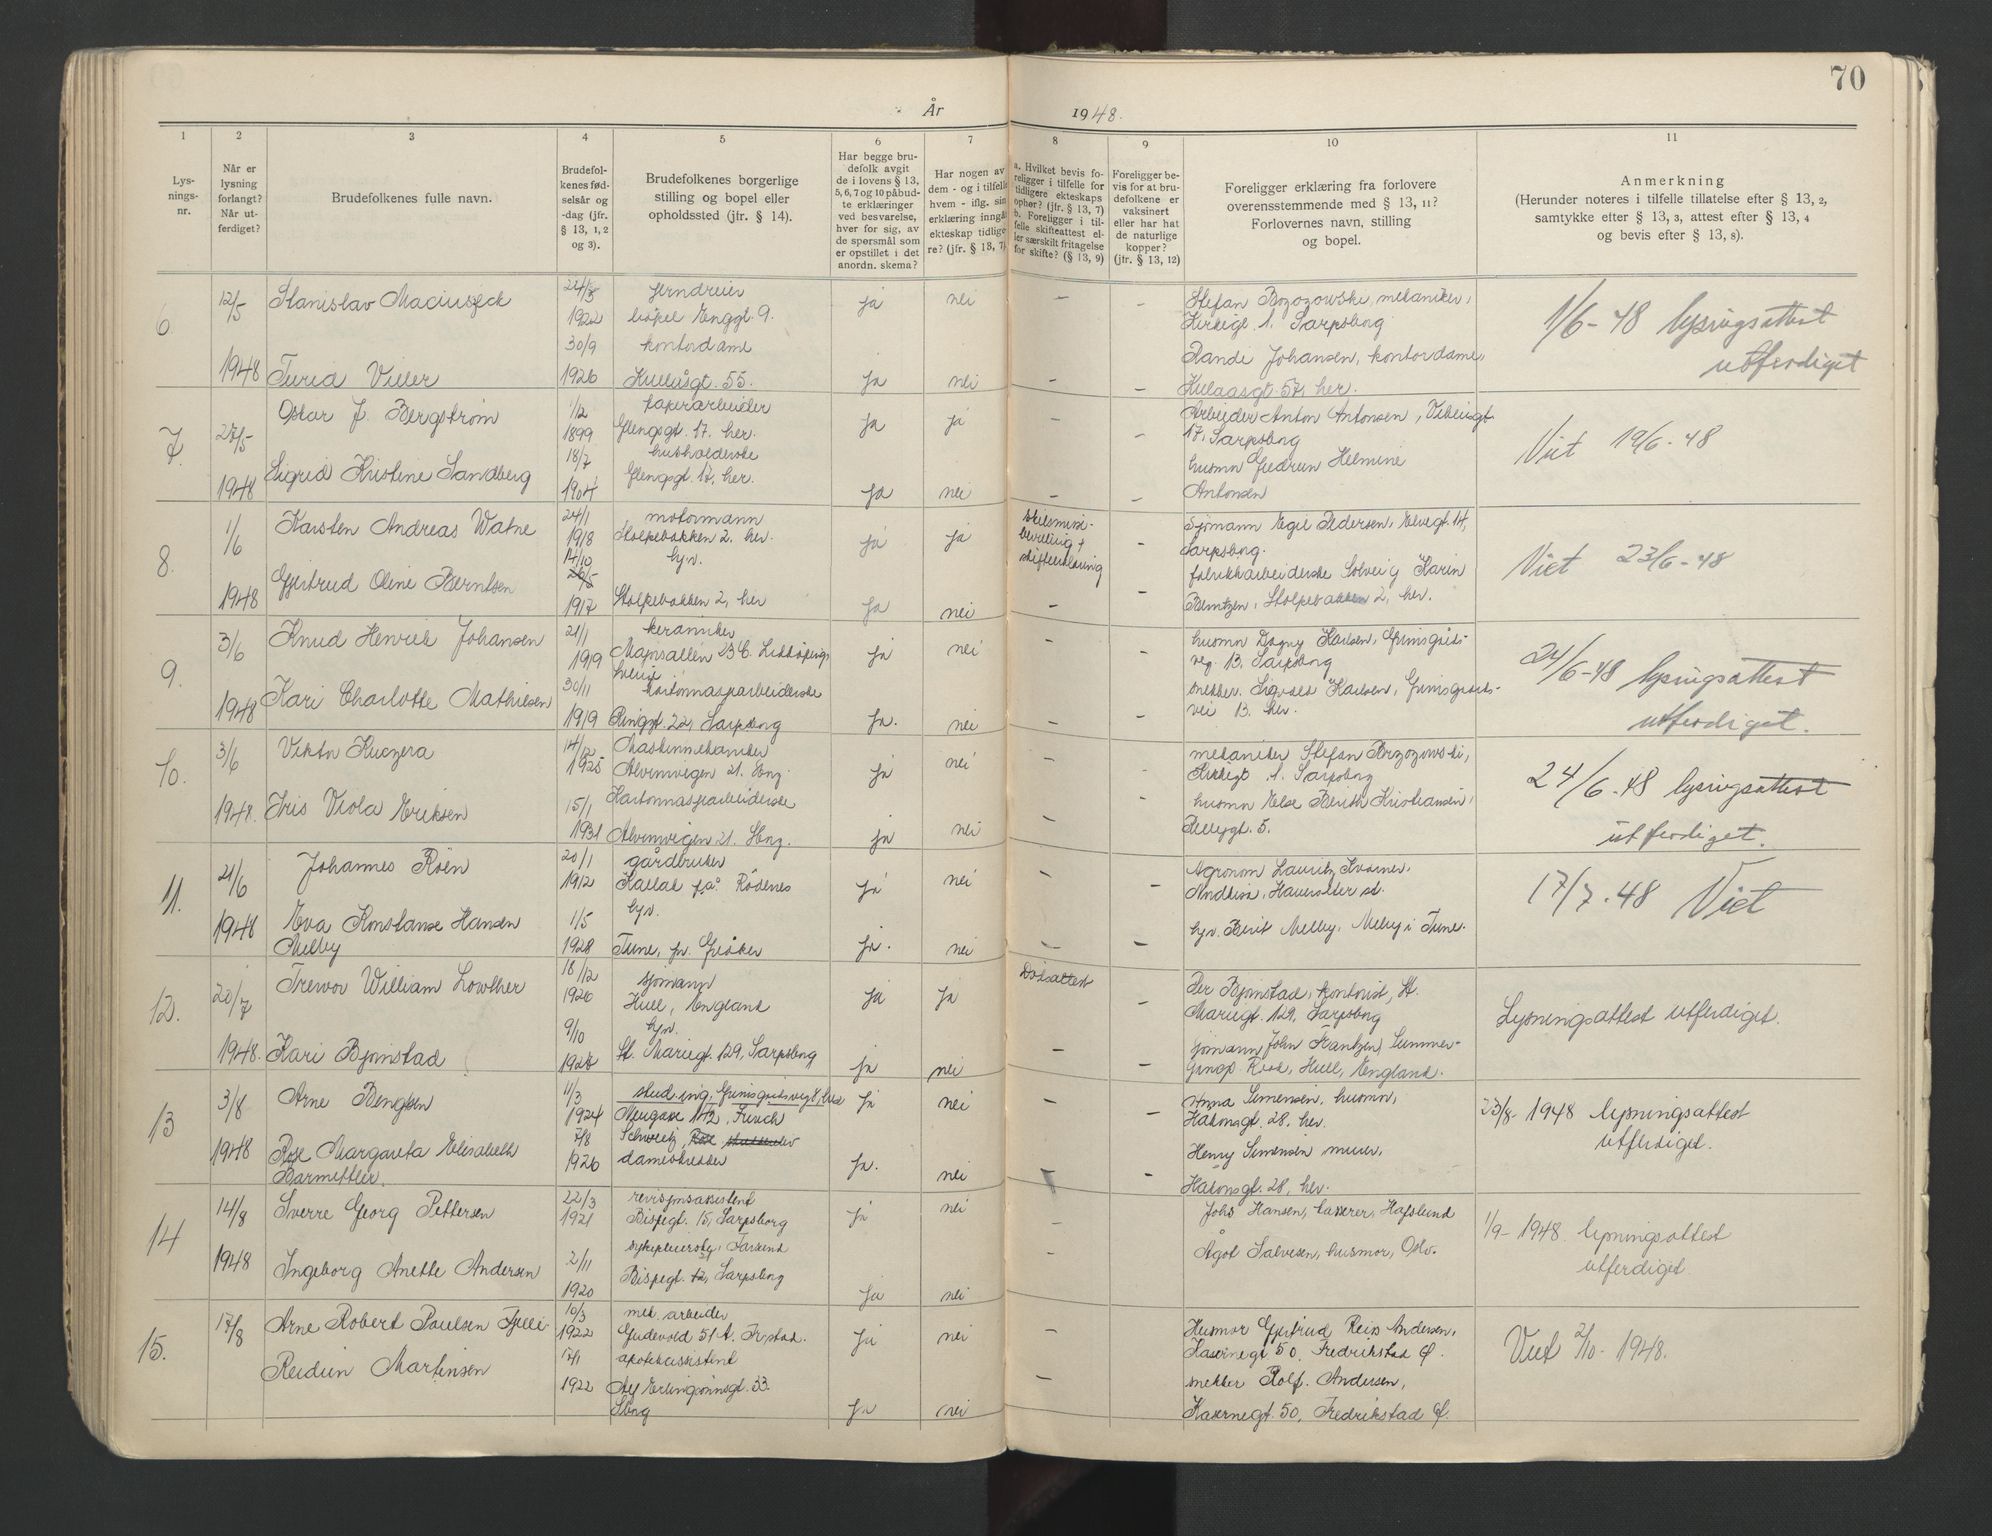 70
År 1948.
1 2 3 4 5 6 7 8 9 10 11
Lys-
nings-
nr.
Når er
lysning
forlangt?
Når ut-
ferdiget?
Brudefolkenes fulle navn.
Brudefol-
kenes fød-
selsår og
-dag (jfr.
§ 13, 1, 2
og 3).
Brudefolkenes borgerlige
stilling og bopel eller
opholdssted (jfr. § 14).
Har begge bru-
defolk avgit
de i lovens § 13,
5, 6, 7 og 10 påbud-
te erklæringer
ved besvarelse,
hver for sig, av
de spørsmål som
er opstillet i det
anordn. skema?
Har nogen av
dem - og i tilfelle
hvem - iflg. sin
erklæring inngåt
ekteskap tidlige-
re? (jfr. § 13, 7)
a. Hvilket bevis fo-
religger i tilfelle for
tidligere ekteskaps
ophør? (jfr. § 13, 7)
b. Foreligger i til-
felle skifteattest el-
ler særskilt fritagelse
for skifte? (§ 13, 9)
Foreligger be-
vis for at bru-
defolkene er
vaksinert
eller har hat
de naturlige
kopper?
(jfr. § 13, 12)
Foreligger erklæring fra forlovere
overensstemmende med § 13, 11?
Forlovernes navn, stilling
og bopel.
Anmerkning
(Herunder noteres i tilfelle tillatelse efter § 13, 2,
samtykke efter § 13, 3, attest efter § 13, 4
og bevis efter § 13, 8).
6 12/5 Stanislav Maciuszek 24/3 jerndreier ja nei — - Stefan Brzozowski, mekaniker,
1922 bopel Enggt. 9. Kirkegt. 1. Sarpsborg 1/6-48 lysingsattest
30/9 kontordame Randi Johansen, kontordame,
1948 Turid Viller 1926 Kulåsgt. 55. ja nei — - Kulaasgt. 57, her. utferdiget
7. 27/5 Oskar J. Bergstrøm 1/12 papirarbeider ja ja — Arbeider Anton Antonsen,
1899 Glengsgt. 17. her. - 17, Sarpsborg Viet 19/6-48
18/7 husholderske husmo Gudrun Helmine
1948 Sigrid Kristine Sandberg 1904 Glengsgt. 17, her. ja nei — - Antonsen
8. 1/6 Karsten Andreas Watne 24/1 motormann ja ja skilsmisse-
1918 Stolpebakken 2. her. bevilling + - Sjømann Egil Pedersen, Elvegt. 14,
14/10 hjv. skifteerklæring Sarpsborg. Viet 23/6-48
26/5 fabrikkarbeiderske Solveig Karin
1948 Gjertrud Oline Berntsen 1917 Stolpebakken 2, her ja nei — - Berntzen, Stolpebakken 2, her.
9. 3/6 Knud Henrik Johansen 21/1 keramiker ja nei — - husmo Dagny Karlsen, Grimsgårds-
1919 23 C. Lidköping, veg. 13, Sarpsborg 24/6-48 lysingsattest
30/11 Kartonnasjearbeiderske snekker. Sigvald Karlsen, Grimsgårds-
1948 Kari Charlotte Mathiesen 1919 Ringgt. 22, Sarpsborg ja. nei — - vei 13. her. utferdiget.
10. 3/6 Viktor Kuczera 14/12 Maskinmekaniker ja nei — - mekaniker Stefan Brzozowski,
1925 Alvimvegen 21. Sbg. Kirkegt. 1. Sarpsborg 24/6-48 lysingsattest
15/1 Kartonnasjearbeiderske - husmo Else Berith Kristiansen,
1948. Iris Viola Eriksen 1931 Alvimvegen 21. Sbg. ja nei — gt. 5. utferdiget.
11. 21/6 Johannes Røen 20/1 gårdbruker ja nei — - Agronom Lauritz Kvarner,
1912 på Rödenes st. 17/7-48 Viet
1948 Eva Konstanse Hansen 1/5 hjv.
Melby 1928 Tune, pr. Greåker ja. nei — - hjv. Berit Melby, Melby i Tune.
12. 20/7 Trevor William Lowther 18/12 sjømann ja ja Dødsattest - Per Bjørnstad, kontorist, St.
1920 Hull, England Mariegt. 129, Sarpsborg Lysningsattest utferdiget.
9/10 hjv. sjømann John Frantzen, Summer-
1948. Kari Bjørnstad 1928 St. Mariegt. 129, Sarpsborg ja nei — - Road, Hull, England.
13 3/8 Arne Bengtsen 4/3 stud. ing. her ja nei - Anna Simensen, husmor,
1924 Håkonsgt. 28, her. 23/8-1948 lysningsattest
7/8 Schweiz, Henry Simensen murer, utferdiget.
1948 Rose Margareta Elisabeth 1926 ja. nei - Håkonsgt. 28, her.
Barmettler.
14 14/8 Sverre Georg Pettersen 22/3 revisjonsassistent ja nei — Johs Hansen, kasserer, Hafslund
1921 Bispegt. 15, Sarpsborg 1/9-1948 lysningsattest
2/11 sykepleierske, Farsund — Ågot Salvesen, husmor, Oslo. utferdiget.
1948 Ingeborg Anette Andersen 1920 Bispegt. 12, Sarpsborg ja nei
15. 17/8 Arne Robert Paulsen 10/3 mek arbeider ja nei — Husmor Gjertrud Reiss Andersen,
1922 51A. Fr.stad. Kasernegt. 50, Fredrikstad Ø. Viet 2/10-1948.
Reidun Martinsen 17/1 apotekassistent snekker Rolf. Andersen,
1922 33. Sbg ja nei — Kasernegt. 50, Fredrikstad Ø.